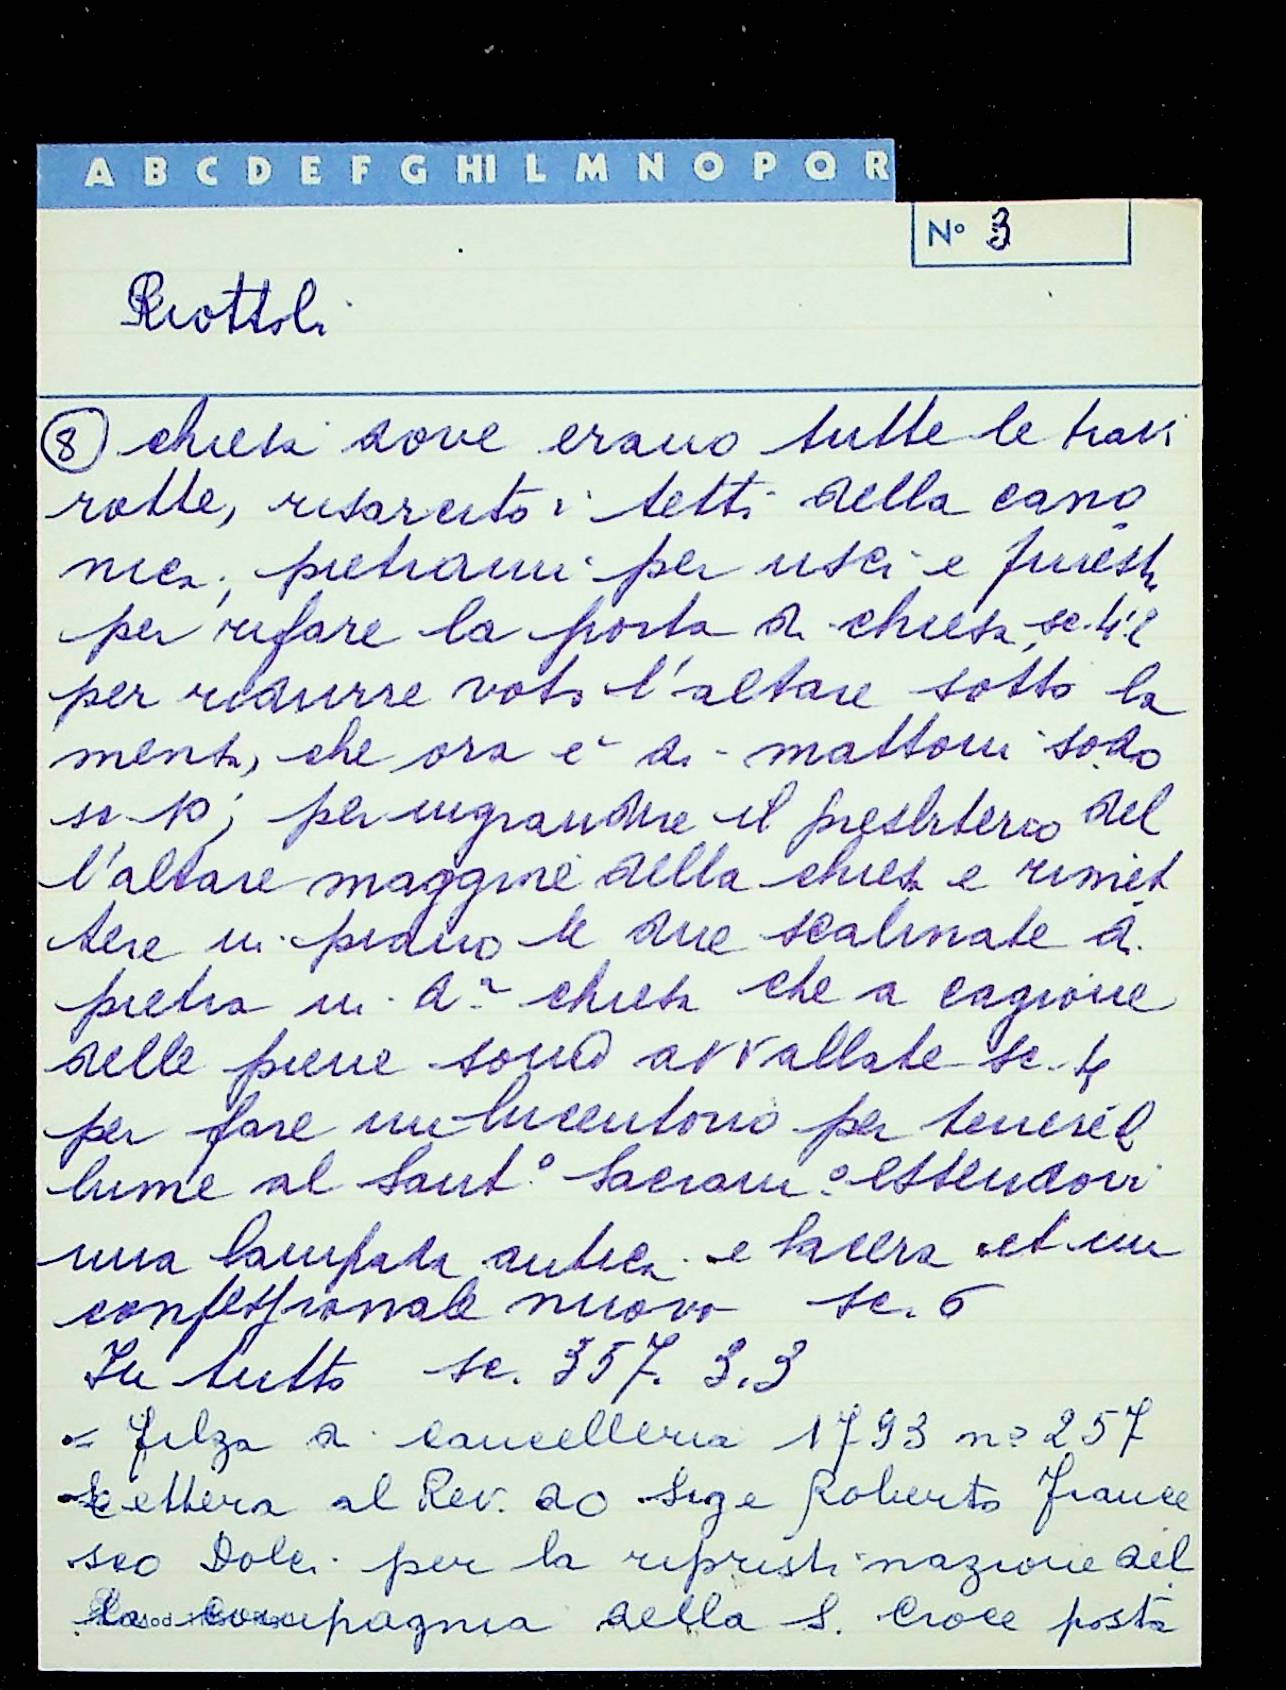 A B C D E F G HI L M N O P Q R
N° 3
Riottoli
8 chiesa dove erano tutte le travi
rotte, risarcito i tetti della cano
nica; pietrami per usci e finestre
per rifare la porta di chiesa, sc.
per ridurre voto l'altare sotto la
mensa, che ora è di mattoni sodo
sc 10; per ingrandire il presbiterio del
l'altare maggiore della chiesa e rimet
tere in piano le due scalinate di
pietra in d.a chiesa che a cagione
delle piene sono avvallate sc. 4
per fare un lucentorio per tenere il
lume al Sant.o Sacram.o essendovi
una lampada antica e lacera et un
confessionale nuovo sc. 6
In tutto sc. 357. 3.3
= Filza di cancelleria 1793 n° 257
Lettera al Rev. do Sig e Roberto France
sco Dolci per la ripristinazione del
la compagnia della S. Croce posta